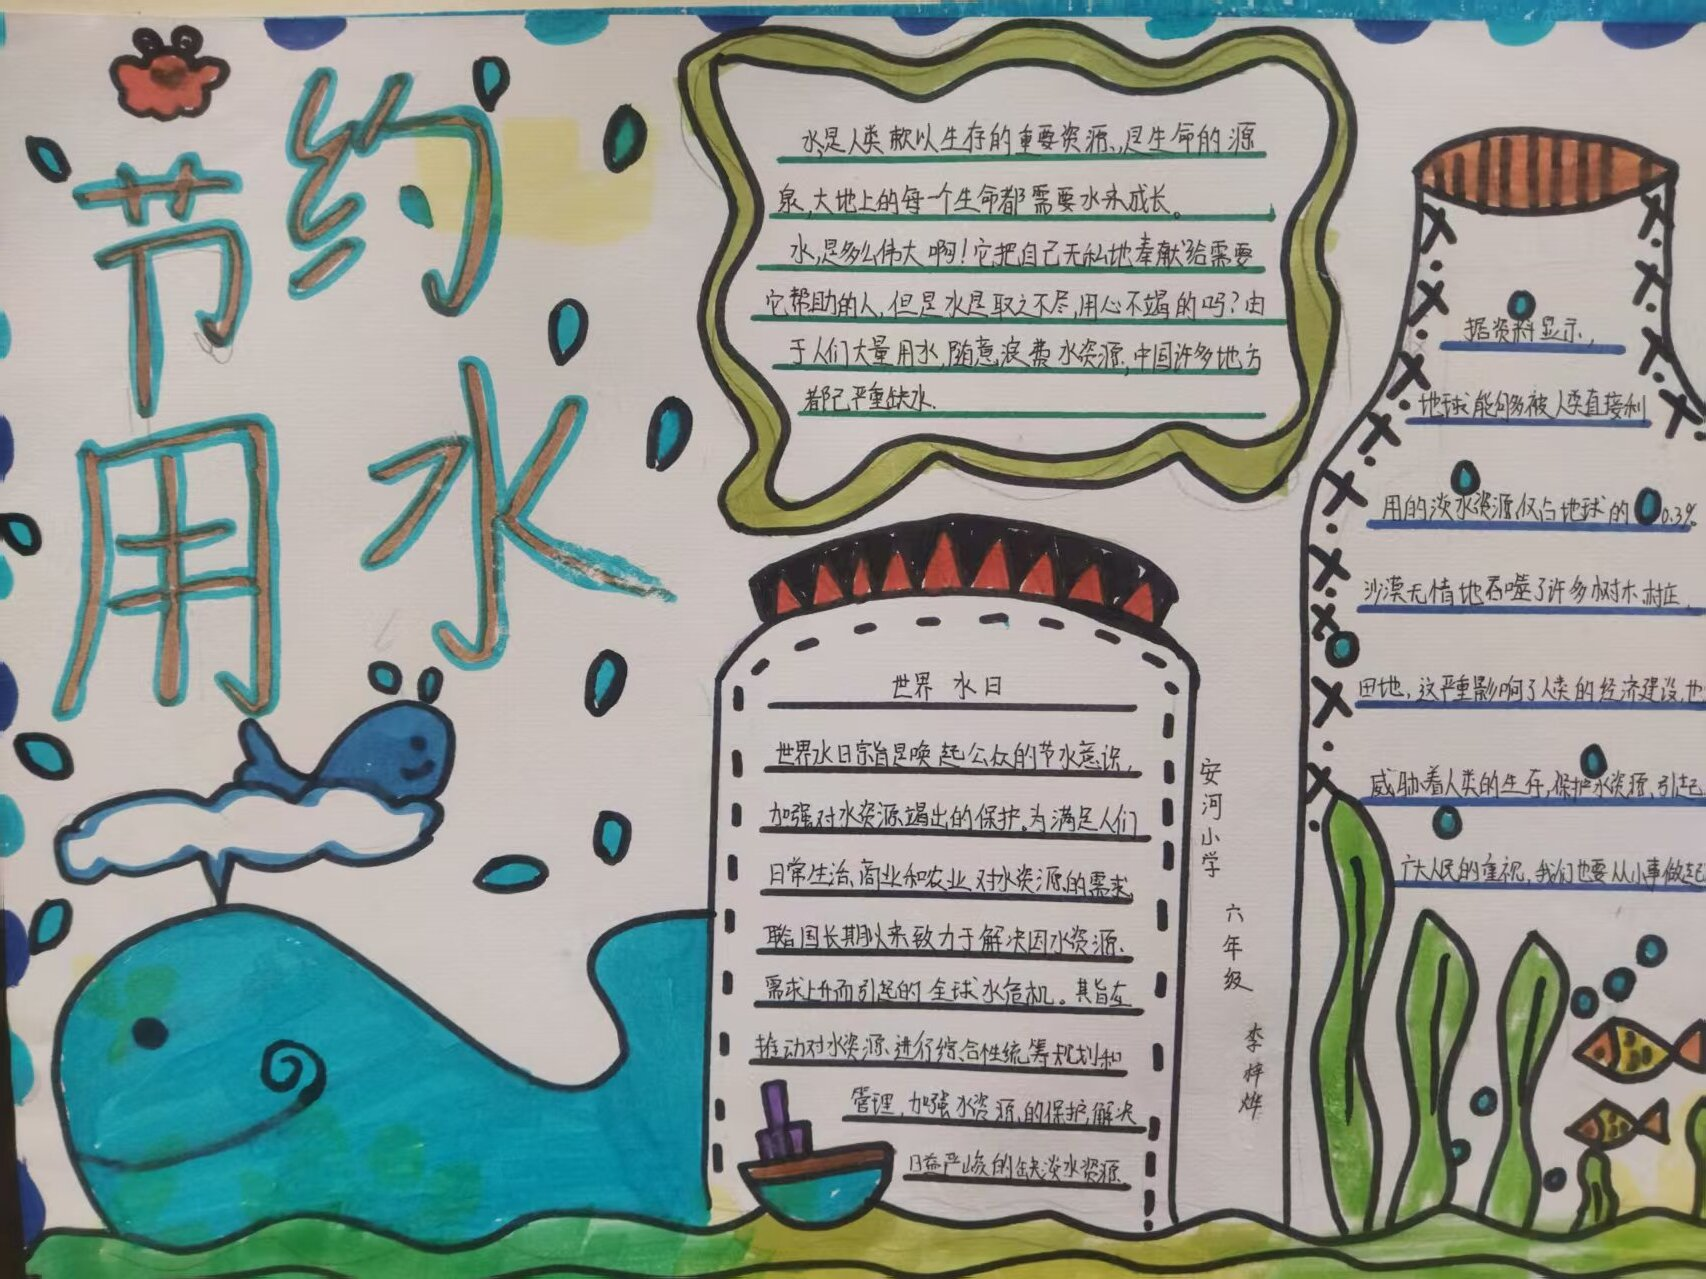 节约
用水
水,是人类款以生存的重要资源,是生命的源
泉,大地上的每一个生命都需要水来成长。
水,是多么伟大啊!它把自己无私地奉献给需要
它帮助的人,但是水是取之不尽,用心不竭的吗?由
于人们大量用水,随意浪费水资源,中国许多地方
都已严重缺水.
世界 水日
世界水日宗旨是唤起公众的节水意识,
加强对水资源竭出的保护。为满足人们
日常生活、商业和农业对水资源的需求
联国长期以来致力于解决因水资源
需求上升而引起的全球水危机。其旨在
推动对水资源进行综合性统筹规划和
管理,加强水资源的保护,解决
日益严峻的缺淡水资源
安河小学
六年级
李梓烨
据资料显示,
地球能够被人类直接利
用的淡水资源仅占地球的0.3%
沙漠无情地吞噬了许多树木村庄,
田地,这严重影响了人类的经济建设,也
威胁着人类的生存,保护水资源,引起
广大人民的重视,我们也要从小事做起